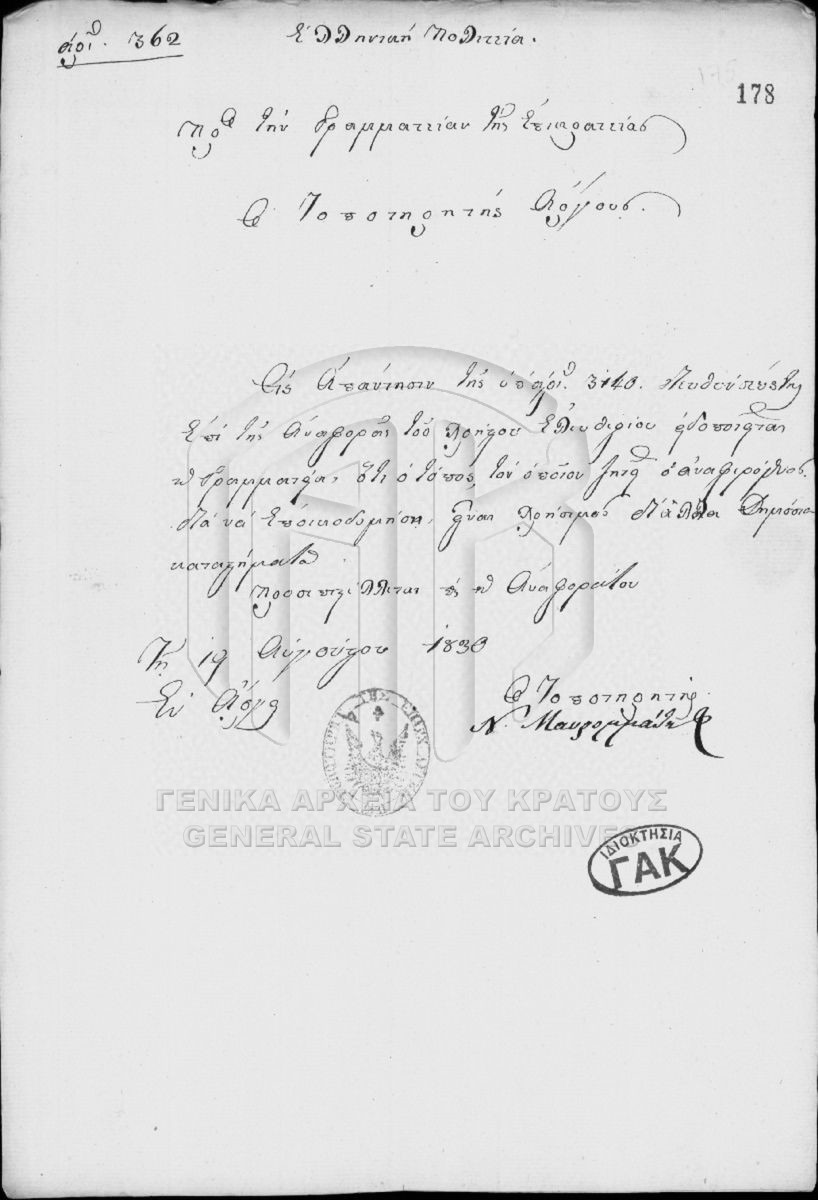 ἀριθ. 362
Ἑλληνική Πολιτεία.
178
Πρὸς τὴν Γραμματείαν τῆς Ἐπικρατείας
Ὁ Τοποτηρητής Ἄργους.
Εἰς Ἀπάντησιν τῆς ὑπ' ἀριθ. 3140.
Ἐπὶ τῆς Ἀναφορᾶς τοῦ Χρήστου Ἐλευθερίου εἰδοποιεῖται
ἡ Γραμματεία, ὅτι ὁ τόπος, τὸν ὁποῖον ζητεῖ ὁ ἀναφερόμενος
διὰ νὰ ἐποικοδομήση, εἶναι χρήσιμος διὰ ἄλλα Δημόσια
καταστήματα
Προσεπιστέλλεται εἰς ἡ Ἀναφορά του
Τῇ 19 Αὐγούστου 1830
Ἐν Ἄργει
Ὁ Τοποτηρητής
Ν. Μαυρομμάτης
ΓΕΝΙΚΑ ΑΡΧΕΙΑ ΤΟΥ ΚΡΑΤΟΥΣ
GENERAL STATE ARCHIVES
ΙΔΙΟΚΤΗΣΙΑ
ΓΑΚ